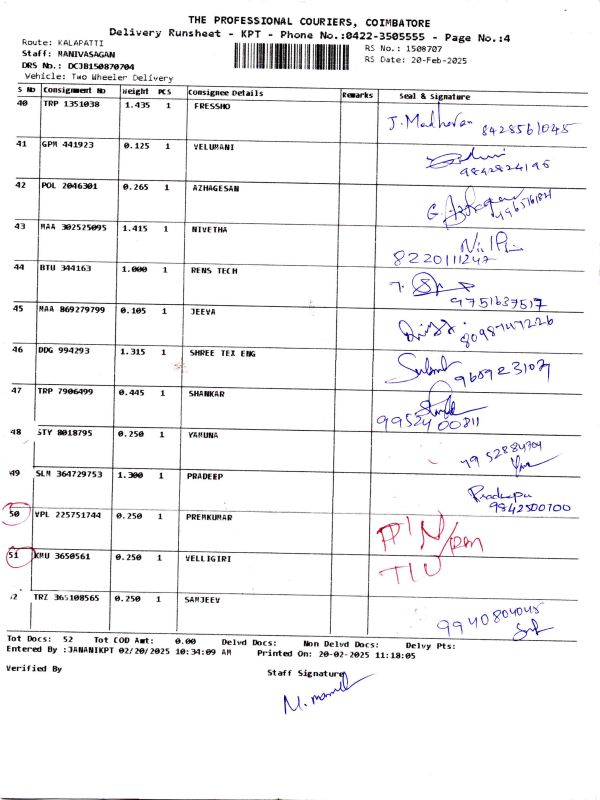 THE PROFESSIONAL COURIERS, COIMBATORE
Delivery Runsheet - KPT - Phone No.:0422-3505555 - Page No.:4
Route: KALAPATTI
RS No.: 1508707
Staff: MANIVASAGAN
RS Date: 20-Feb-2025
DRS No.: DCJB150870704
Vehicle: Two Wheeler Delivery
S No Consignment No Weight PCS Consignee Details Remarks Seal & Signature
40 TRP 1351038 1.435 1 FRESSHO
J. Madhavan 8428561045
41 GPM 441923 0.125 1 VELUMANI
9842824195
42 POL 2046301 0.265 1 AZHAGESAN
43 MAA 302525095 1.415 1 NIVETHA
8220111247
44 BTU 344163 1.000 1 RENS TECH
9751637517
45 MAA 869279799 0.105 1 JEEVA
8098747226
46 DDG 994293 1.315 1 SHREE TEX ENG
47 TRP 7906499 0.445 1 SHANKAR
9952400811
48 STY 8018795 0.250 1 YAMUNA
9952884704
49 SLM 364729753 1.300 1 PRADEEP
Pradeepa
9842500700
50 VPL 225751744 0.250 1 PREMKUMAR
51 KMU 3650561 0.250 1 VELLIGIRI
TRZ 365108565 0.250 1 SAMJEEV
9940804045
Tot Docs: 52 Tot COD Amt: 0.00 Delvd Docs: Non Delvd Docs: Delvy Pts:
Entered By :JANANIKPT 02/20/2025 10:34:09 AM Printed On: 20-02-2025 11:18:05
Verified By
Staff Signature